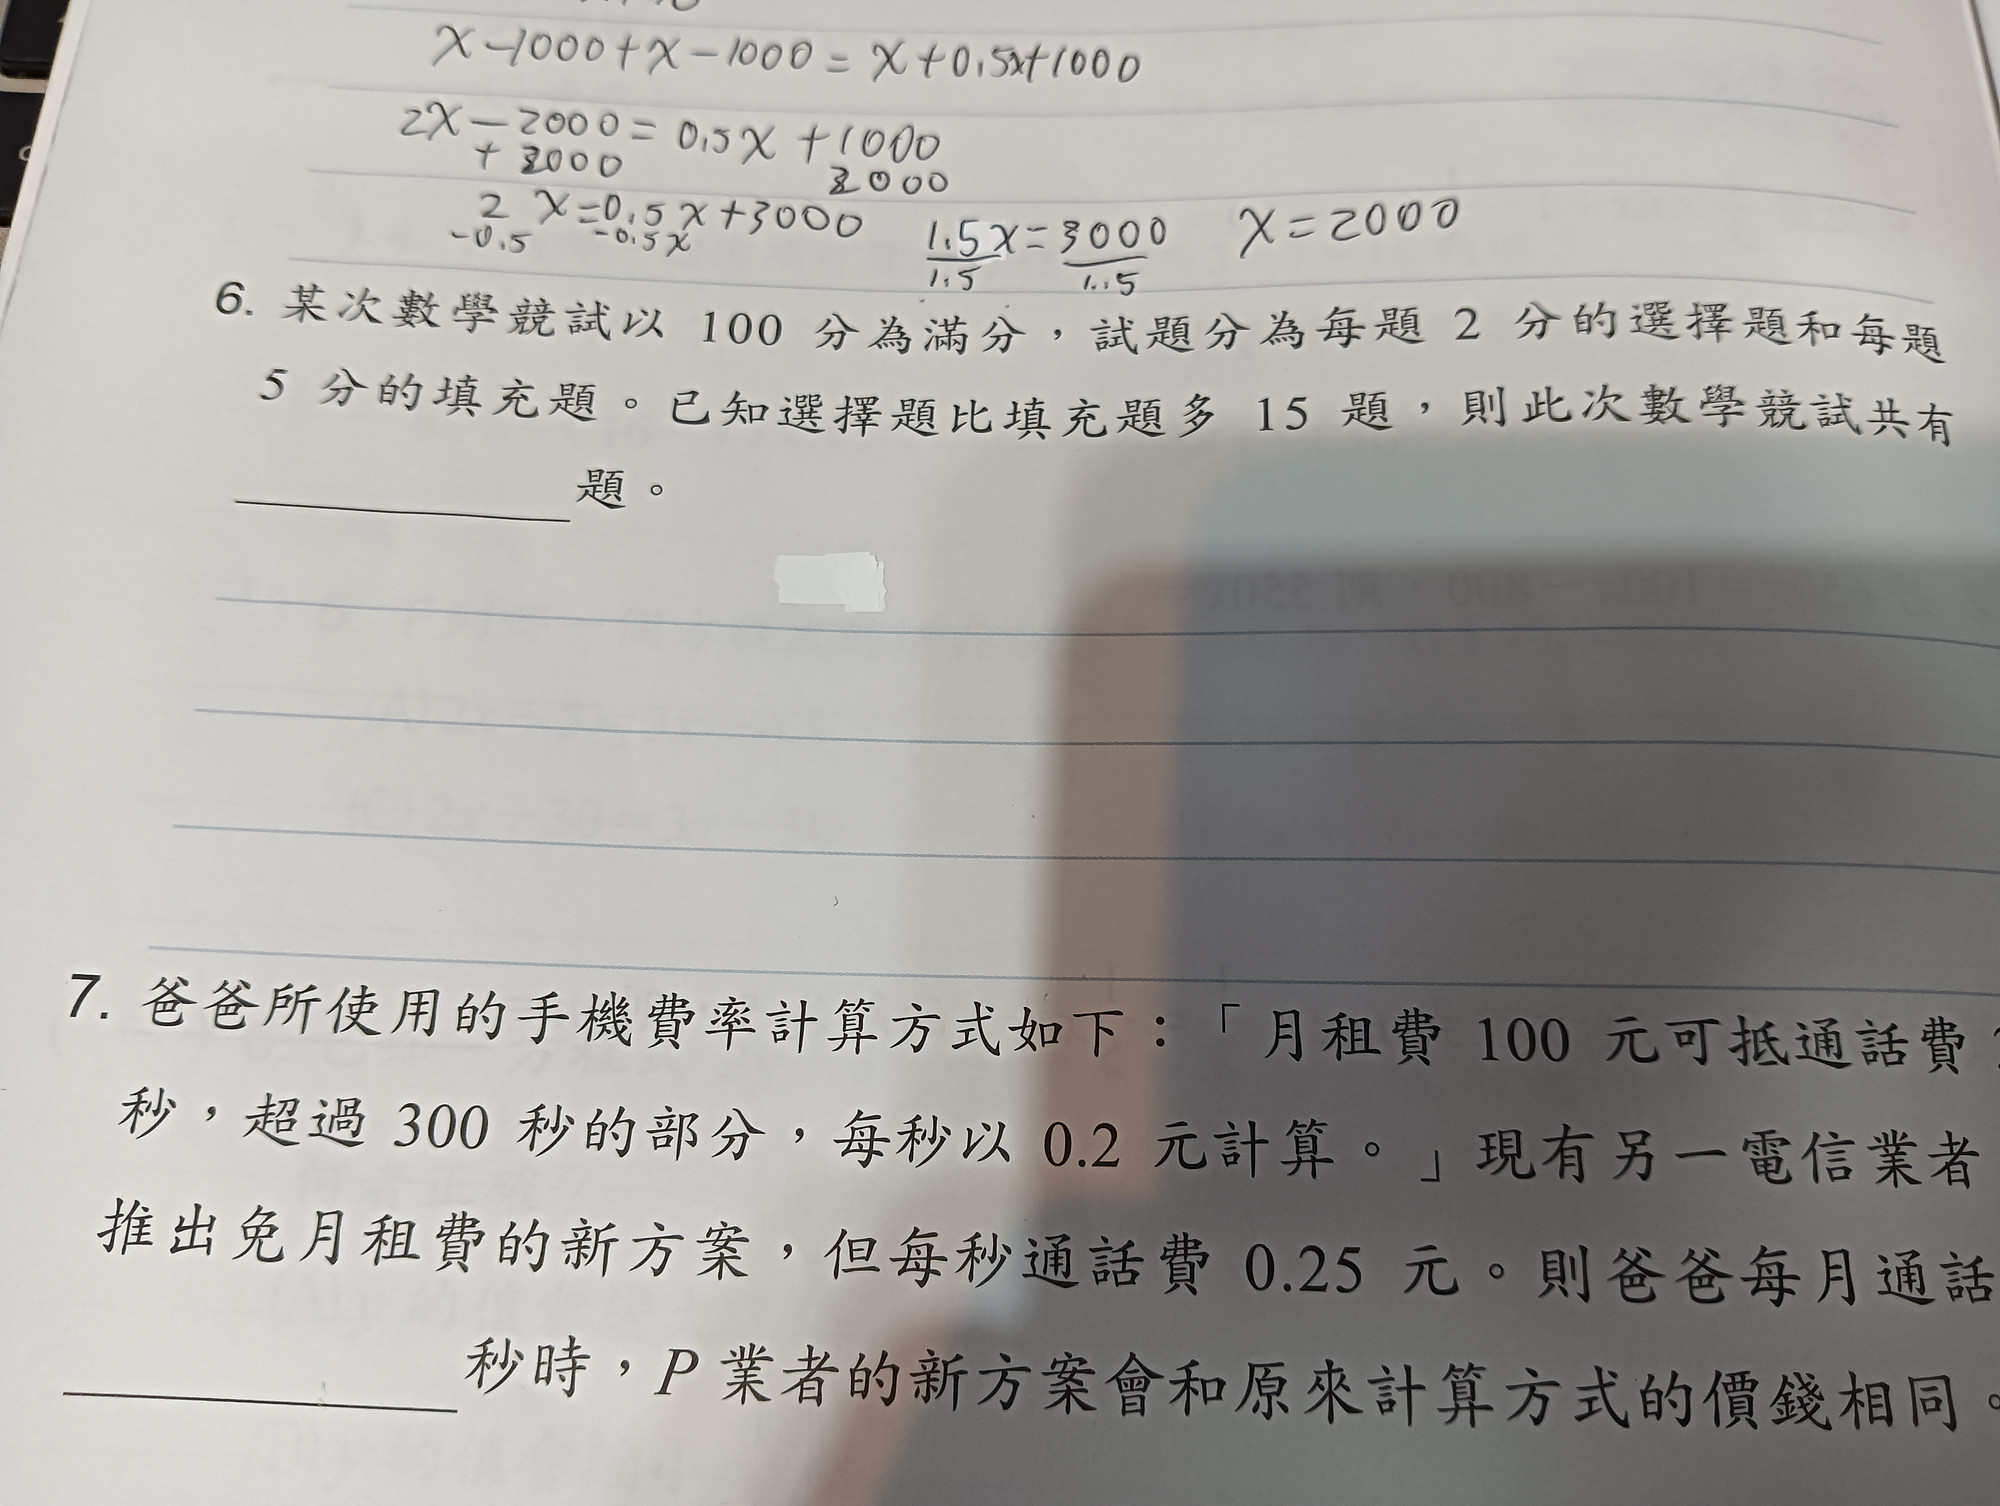 x-1000+x-1000=x+0.5x+1000
2x-2000=0.5x+1000
+2000 2000
2x=0.5x+3000 1.5x=3000 x=2000
-0.5 -0.5x 1.5 1.5
6. 某次數學競試以 100 分為滿分，試題分為每題 2 分的選擇題和每題
5 分的填充題。已知選擇題比填充題多 15 題，則此次數學競試共有
題。
7. 爸爸所使用的手機費率計算方式如下：「月租費 100 元可抵通話費
秒，超過 300 秒的部分，每秒以 0.2 元計算。」現有另一電信業者
推出免月租費的新方案，但每秒通話費 0.25 元。則爸爸每月通話
秒時，P 業者的新方案會和原來計算方式的價錢相同。